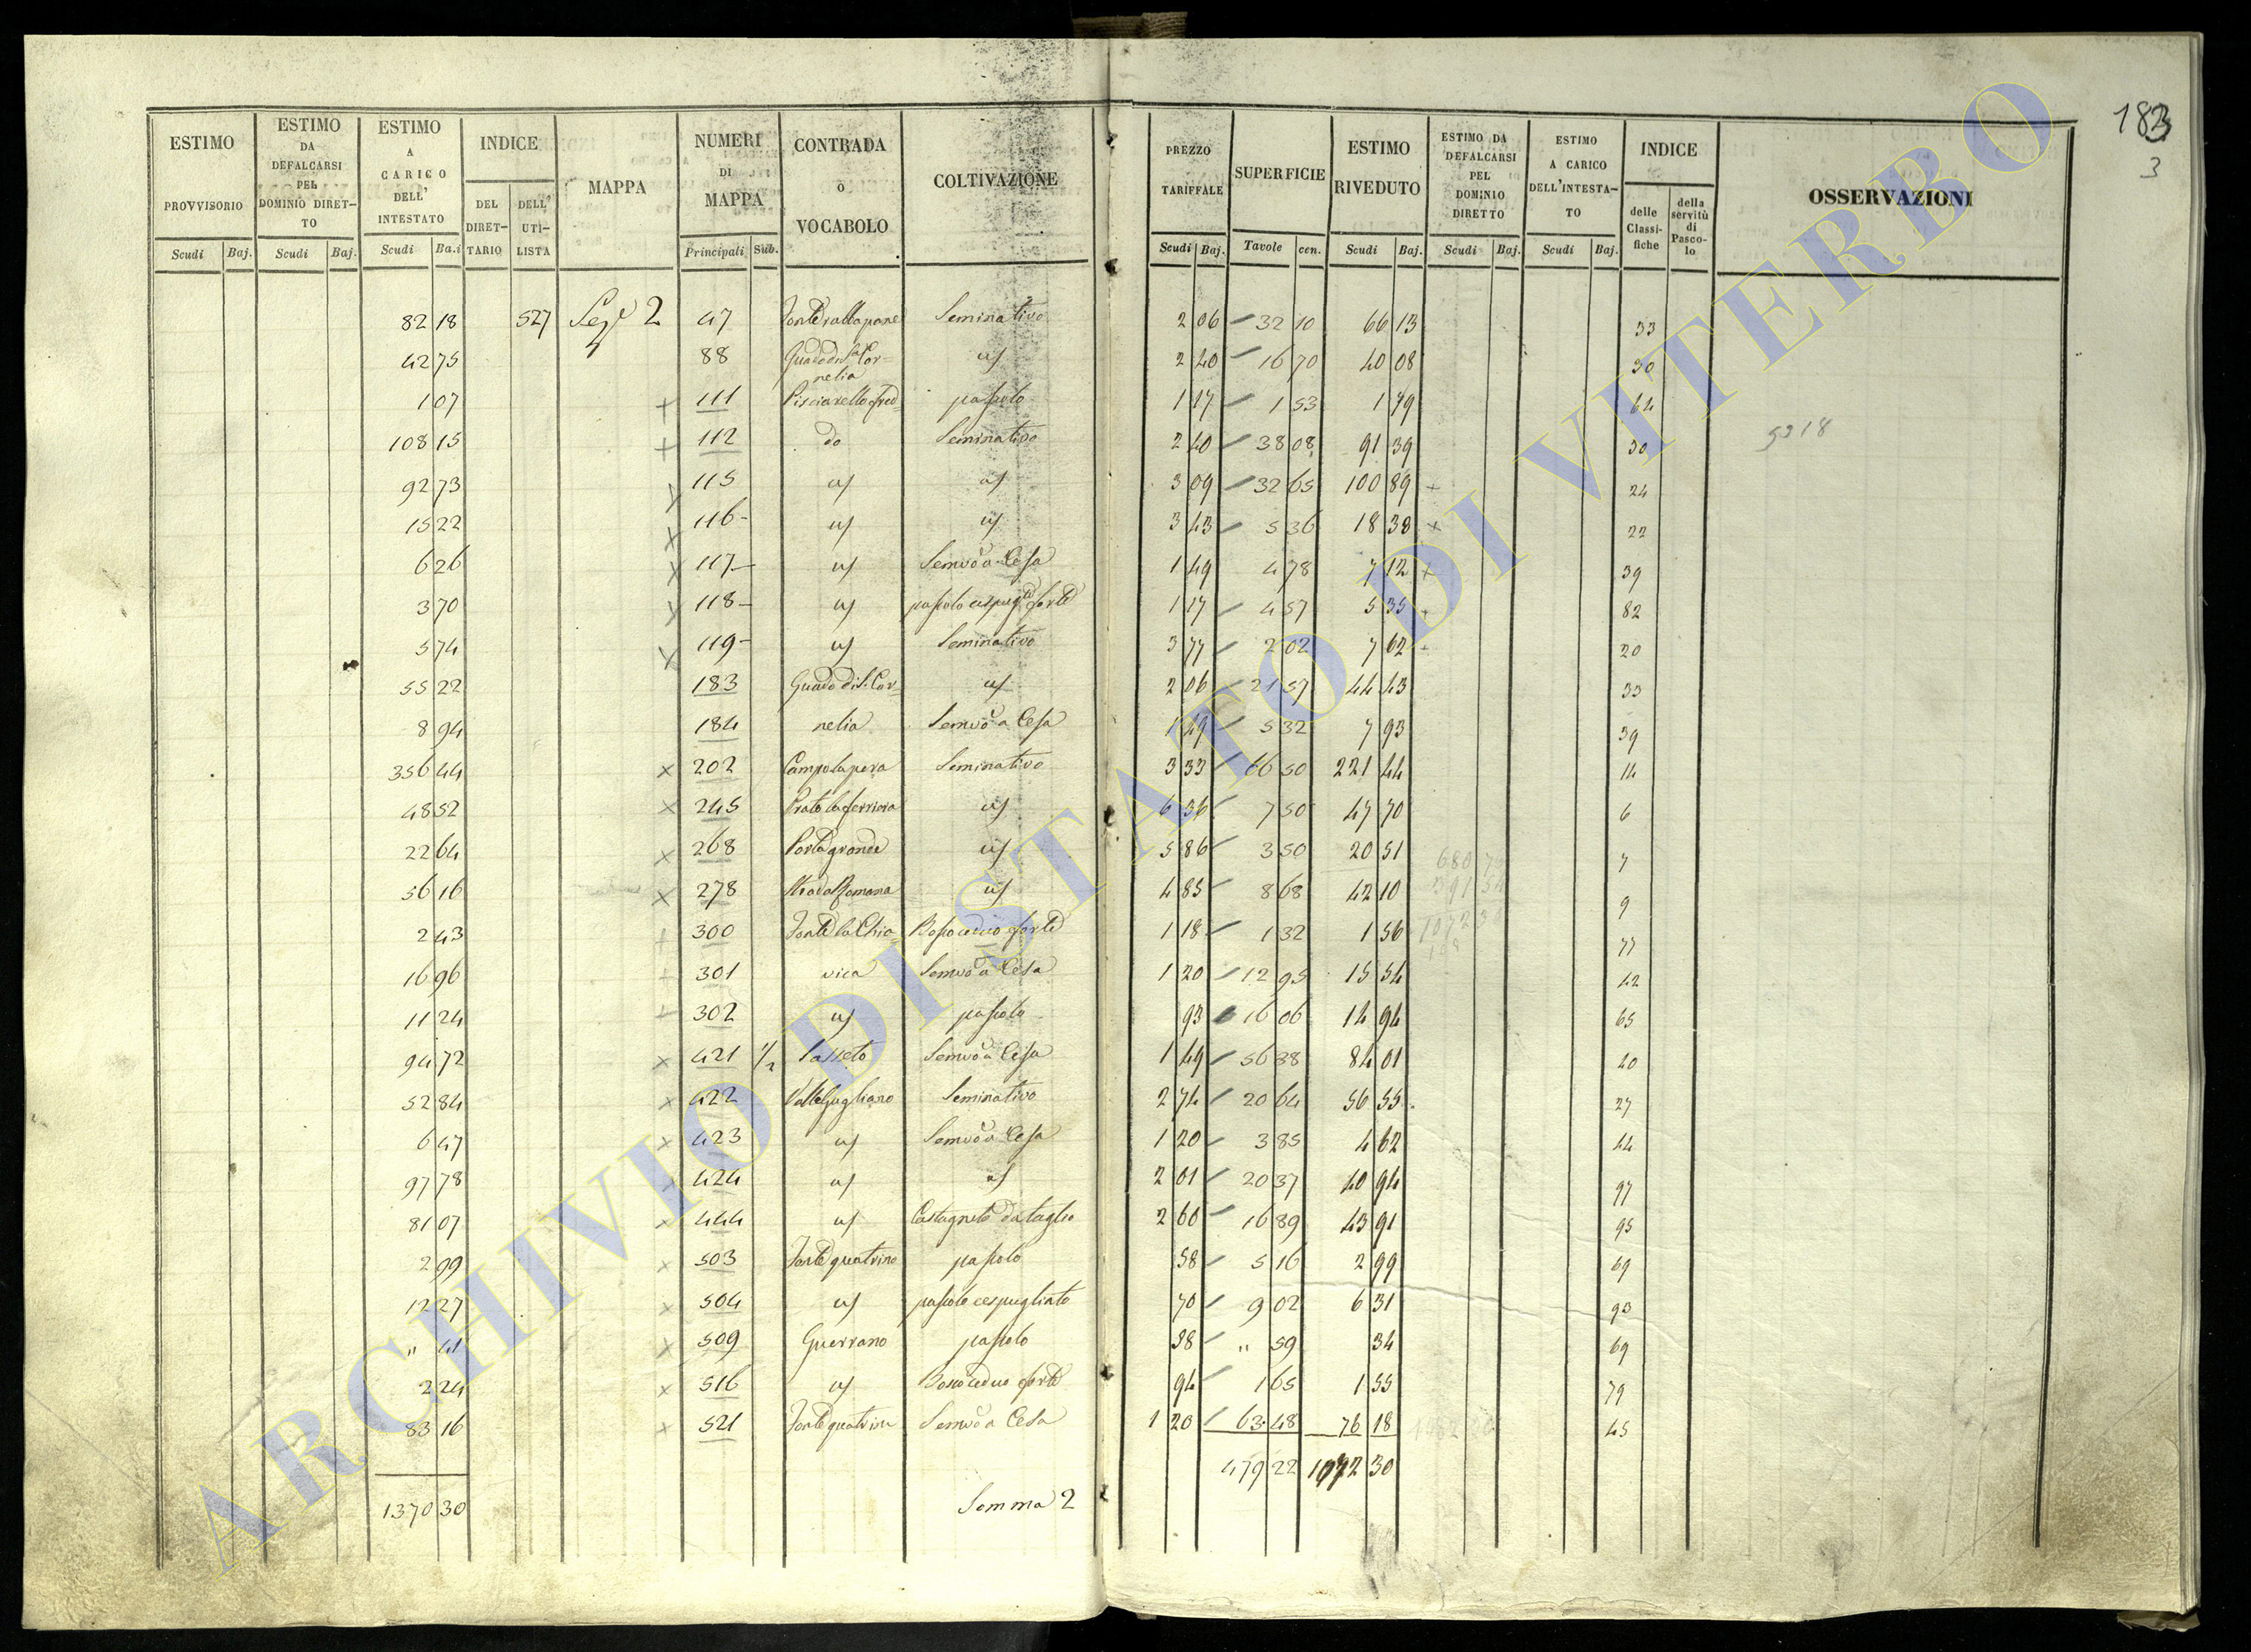 183
3
ESTIMO PROVVISORIO Scudi Baj.
ESTIMO DA DEFALCARSI PEL DOMINIO DIRET-TO Scudi Baj.
ESTIMO A CARICO DELL' INTESTATO Scudi Ba.i
INDICE DEL DIRET-TARIO DELL' UTI-LISTA
MAPPA
NUMERI DI MAPPA Principali Sub.
CONTRADA O VOCABOLO
COLTIVAZIONE
PREZZO TARIFFALE Scudi Baj.
SUPERFICIE Tavole cen.
ESTIMO RIVEDUTO Scudi Baj.
ESTIMO DA DEFALCARSI PEL DOMINIO DIRETTO Scudi Baj.
ESTIMO A CARICO DELL'INTESTA-TO Scudi Baj.
INDICE delle Classi-fiche della servitù di Pasco-lo
OSSERVAZIONI
82 18 527 Sez.e 2 47 Seminativo 2 06 32 10 66 13 33
42 75 88 Guado di S.a Cor- u/ 2 40 16 70 40 08 30
nelia
1 07 111 Pisciarello pascolo 1 17 1 53 1 79 64
108 15 112 do Seminativo 2 40 38 08 91 39 30 5318
92 73 115 u/ u/ 3 09 32 65 100 89 24
15 22 116 u/ u/ 3 43 5 36 18 38 22
6 26 117 u/ Semvo a Cesa 1 49 4 78 7 12 39
3 70 118 u/ pascolo cespugto forte 1 17 4 57 5 35 82
5 74 119 u/ Seminativo 3 77 2 02 7 62 20
55 22 183 Guado di S. Cor- u/ 2 06 21 57 44 43 33
8 94 184 nelia Semvo a Cesa 1 49 5 32 7 93 39
356 44 202 Campo la pera Seminativo 3 33 66 50 221 44 14
48 52 245 Prato la ferriera u/ 6 36 7 50 47 70 6
22 64 268 Porta grande u/ 5 86 3 50 20 51 7
56 16 278 Strada Romana u/ 4 85 8 68 42 10 9
2 43 300 Fonte la Chia- Bosco ceduo forte 1 18 1 32 1 56 77
16 96 301 vica Semvo a Cesa 1 20 12 95 15 54 42
11 24 302 u/ pascolo 93 16 06 14 94 65
94 72 421 1/2 Sasseto Semvo a Cesa 1 49 56 38 84 01 40
52 84 422 Valle Gugliano Seminativo 2 74 20 64 56 55 27
6 47 423 u/ Semvo a Cesa 1 20 3 85 4 62 44
97 78 424 u/ u/ 2 01 20 37 40 94 97
81 07 444 u/ Castagneto da taglio 2 60 16 89 43 91 95
2 99 503 Fonte quatrino pascolo 58 5 16 2 99 69
12 27 504 u/ pascolo cespugliato 70 9 02 6 31 93
" 41 509 Guerrano pascolo 58 " 59 34 69
2 24 516 u/ Bosco ceduo forte 94 1 65 1 55 79
83 16 521 Fonte quatrin Semvo a Cesa 1 20 63 48 76 18 45
479 22 1072 30
1370 30 Somma 2
ARCHIVIO DI STATO DI VITERBO